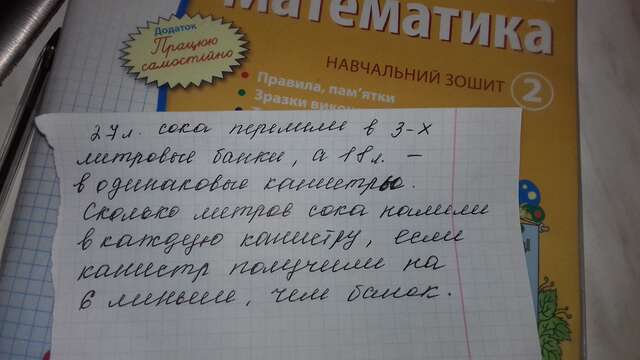 24л. сока перелили в 3-х
литровые банки, а 18л. –
в одинаковые канистры.
Сколько литров сока налили
в каждую канистру, если
канистр получили на
6 меньше, чем банок.
Додаток
Працюю
самостійно
Математика
НАВЧАЛЬНИЙ ЗОШИТ
2
• Правила, пам'ятки
• Зразки